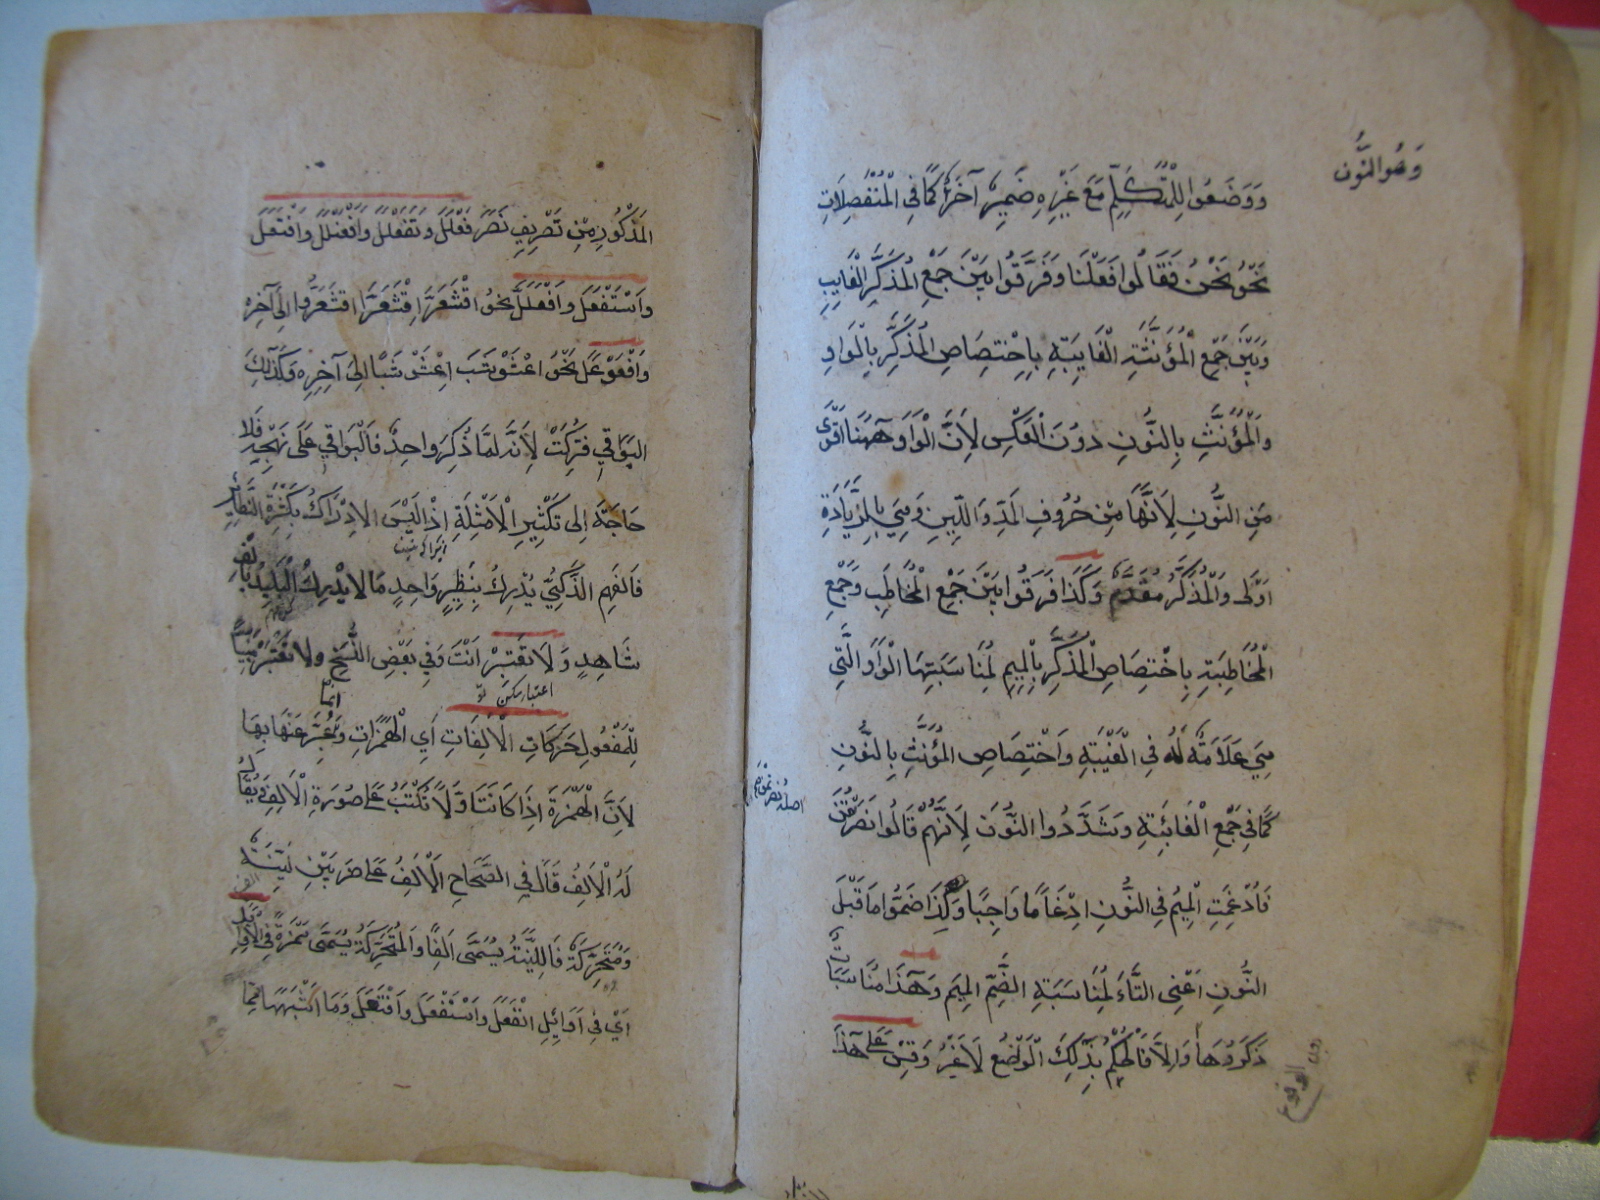 وهو النون
وَوَضَعُوا لِلْمُتَكَلِّمِ مَعَ غَيْرِهِ ضَمِيرًا آخَرَ كَمَا فِي الْمُنْفَصِلَاتِ
نَحْوُ نَحْنُ فَقَالُوا فَعَلْنَا وَفَرَّقُوا بَيْنَ جَمْعِ الْمُذَكَّرِ الْغَايِبِ
وَبَيْنَ جَمْعِ الْمُؤَنَّثَةِ الْغَايِبَةِ بِاِخْتِصَاصِ الْمُذَكَّرِ بِالْوَاوِ
وَالْمُؤَنَّثِ بِالنُّونِ دُونَ الْعَكْسِ لِأَنَّ الْوَاوَ هَهُنَا أَقْوَى
مِنَ النُّونِ لِأَنَّهَا مِنْ حُرُوفِ الْمَدِّ وَاللِّينِ وَهِيَ بِالزِّيَادَةِ
أَوْلَى وَالْمُذَكَّرُ مُقَدَّمٌ وَكَذَا فَرَّقُوا بَيْنَ جَمْعِ الْمُخَاطَبِ وَجَمْعِ
الْمُخَاطَبَةِ بِاخْتِصَاصِ الْمُذَكَّرِ بِالْمِيمِ لِمُنَاسَبَتِهَا الْوَاوَ الَّتِي
هِيَ عَلَامَةٌ لَهُ فِي الْغَيْبَةِ وَاخْتِصَاصِ الْمُؤَنَّثِ بِالنُّونِ
كَمَا فِي جَمْعِ الْغَائِبَةِ وَشَدَّدُوا النُّونَ لِأَنَّهُمْ قَالُوا نَصَرْتُنَّ
اصله نصرتمن
فَأُدْغِمَتِ الْمِيمُ فِي النُّونِ اِدْغَامًا وَاجِبًا وَكَذَا ضَمُّوا مَا قَبْلَ
النُّونِ اَعْنِى التَّاءَ لِمُنَاسَبَةِ الضَّمِّ الْمِيمَ وَهَذَا مُنَاسَبَاتٌ
ذَكَرُوهَا وَاِلَّا فَالْحُكْمُ بِذَلِكَ الْوَضْعِ لَا غَيْرُ وَقِسْ عَلَى هَذَا
المَذْكُورِ مِنْ تَصْرِيفِ نَصَرَ فَعْلَلَ وَتَفَعْلَلَ وَافْعَنْلَلَ وَافْتَعَلَ
وَاسْتَفْعَلَ وَافْعَلَلَّ نَحْوُ اقْشَعَرَّ اِقْشَعَرَّا اقْشَعَرُّوا اِلَى آخِرِهِ
وَافْعَوْعَلَ نَحْوُ اعْشَوْشَبَ اِعْشَوْشَبَا اِلَى آخِرِهِ وَكَذَلِكَ
البَوَاقِي فَتُرِكَتْ لِأَنَّهُ لَمَّا ذُكِرَ وَاحِدٌ فَالْبَوَاقِي عَلَى نَهْجِهِ فَلَا
حَاجَةَ اِلَى تَكْثِيرِ الْاَمْثِلَةِ اِذْ لَيْسَ الاِدْرَاكُ بِكَثْرَةِ النَّظَائِرِ
فَالفَهِمِ الذَّكِيِّ يُدْرِكُ بِنَظِيرٍ وَاحِدٍ مَا لَا يُدْرِكُ الْبَلِيدُ بِأَلْفِ
شَاهِدٍ وَلَا تَعْتَبِرْ اَنْتَ وَفِي بَعْضِ النُّسَخِ وَلَا تُعْتَبَرُ مَبْنِيًّا
اعتبار
انما
لِلْمَفْعُولِ حَرَكَاتِ الْاَلِفَاتِ أَيِ الْهَمَزَاتِ وَعُبِّرَ عَنْهَا بِهَا
لِأَنَّ الْهَمْزَةَ اِذَا كَانَتْ اَوَّلًا تُكْتَبُ عَلَى صُورَةِ الْاَلِفِ وَيُقَالُ
لَهُ الْاَلِفُ قَالَ فِي الصَّحَاحِ اَلْاَلِفُ عَلَى ضَرْبَيْنِ لَيِّنَةٌ
وَمُتَحَرِّكَةٌ فَاللَّيِّنَةُ يُسَمَّى اَلِفًا وَالْمُتَحَرِّكَةُ يُسَمَّى هَمْزَةً فِي الْأَوَائِلِ
اَيْ فِي اَوَائِلِ انْفَعَلَ وَاسْتَفْعَلَ وَافْتَعَلَ وَمَا اَشْبَهَهَا مِمَّا